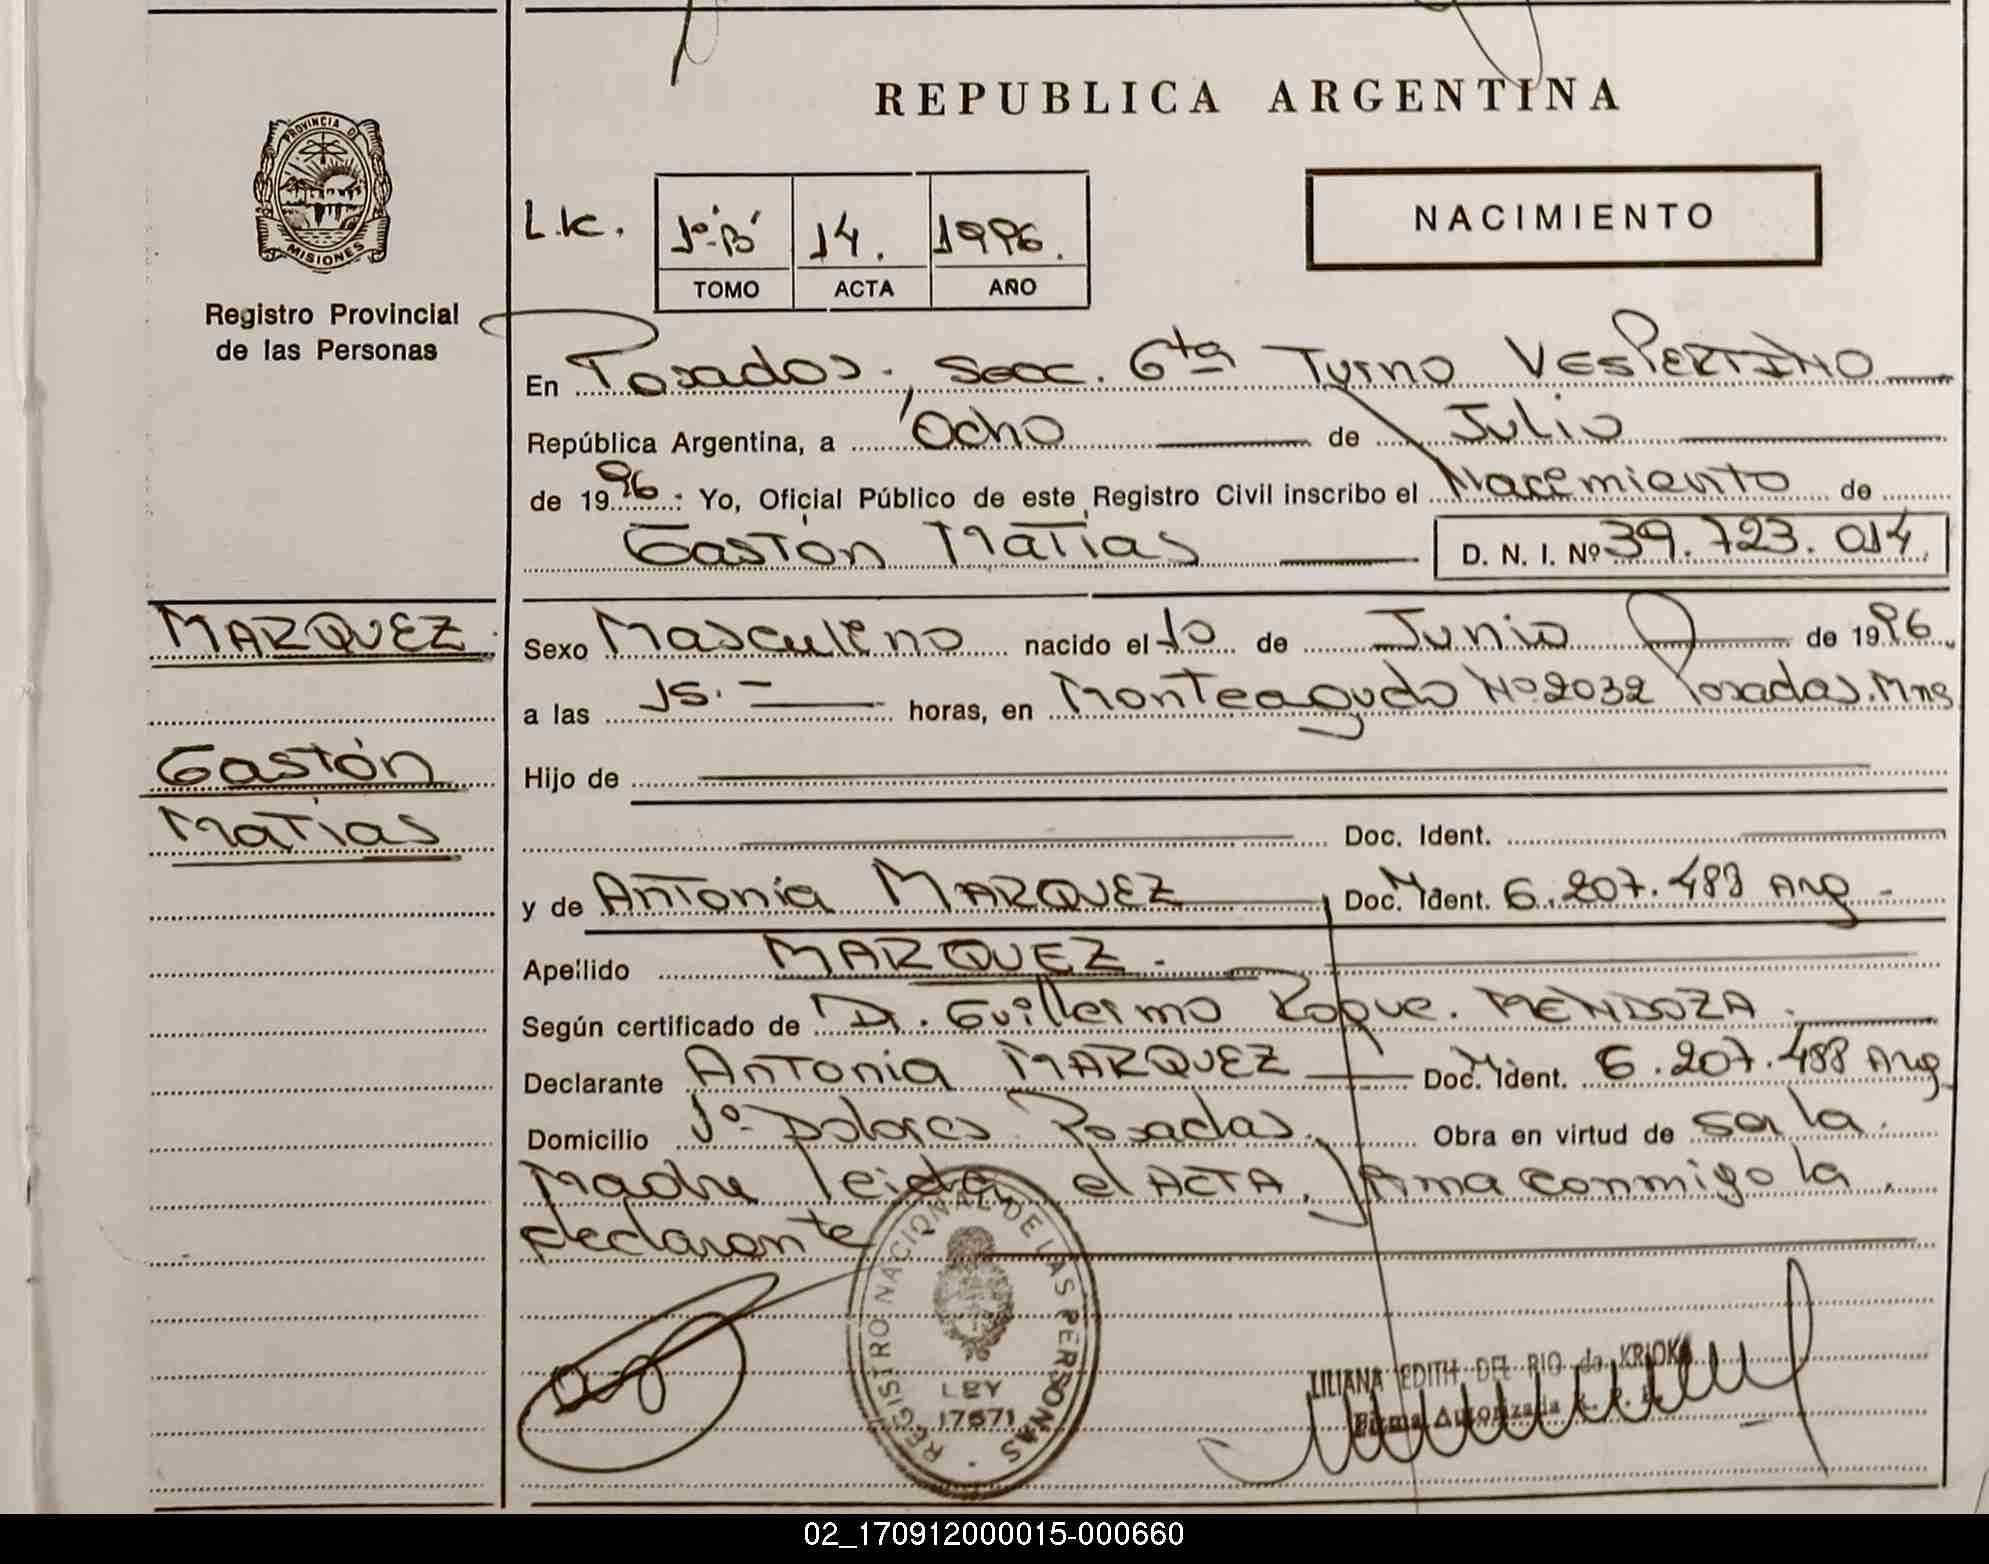 REPUBLICA ARGENTINA
PROVINCIA D
MISIONES
Registro Provincial
de las Personas
L.K.
1º-B' 14. 1996.
TOMO ACTA AÑO
NACIMIENTO
En Posadas, Secc. 6ta Turno VESPERTINO
República Argentina, a Ocho de Julio
de 1996: Yo, Oficial Público de este Registro Civil inscribo el Nacimiento de
Gastón Matías D. N. I. Nº 39.723.014
MARQUEZ
Gastón
Matías
Sexo Masculino nacido el 10 de Junio de 1996
a las 15.- horas, en Monteagudo Nº 2032 Posadas. Mns
Hijo de
Doc. Ident.
y de Antonia MARQUEZ Doc. Ident. 6.207.488 Arg -
Apellido MARQUEZ.-
Según certificado de Dr. Guillermo Roque. MENDOZA.
Declarante Antonia MARQUEZ Doc. Ident. 6.207.488 Arg
Domicilio Posadas. Obra en virtud de ser la
Madre leida el ACTA, firma conmigo la
declarante
REGISTRO NACIONAL DE LAS PERSONAS
LEY
17671
LILIANA EDITH DEL RIO de KRIOKA
Firma Autorizada
02_170912000015-000660